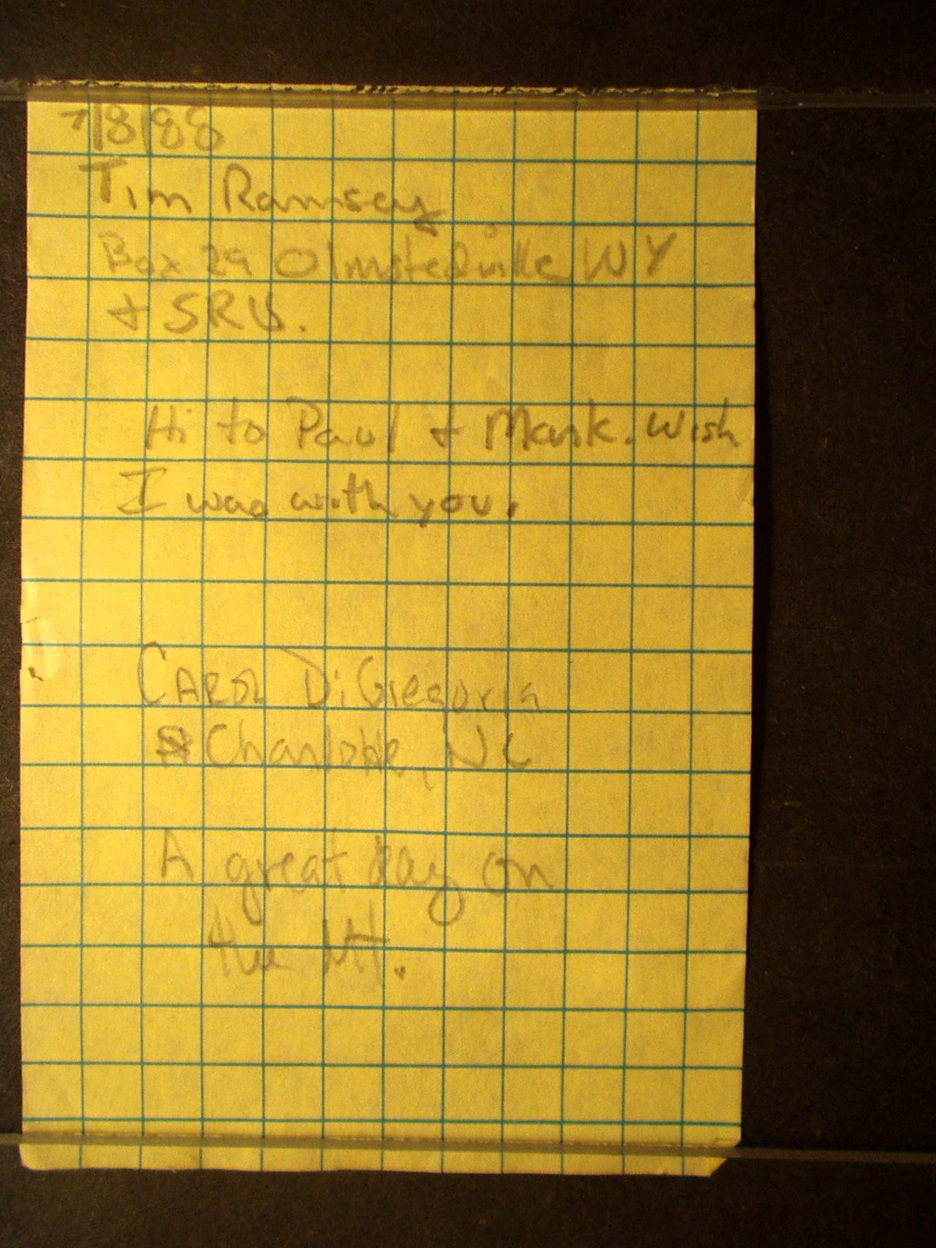 7/8/88
Tim Ramsey
Box 29 Olmstedville NY
+ SRU.
Hi to Paul + Mark. Wish
I was with you.
CAROL DiGregoria
Charlotte, NC
A great day on
the Mt.